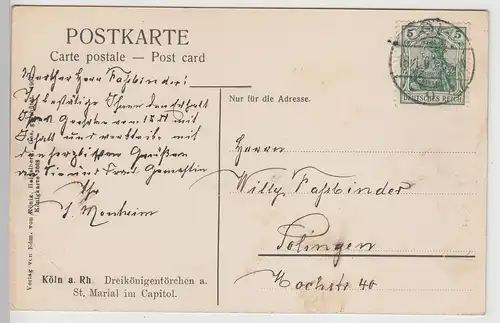 POSTKARTE
Carte postale — Post card
Werther Herr Faßbinder!
Ich bestätige Ihnen den Erhalt
Ihres Geehrten vom
Inhalt und verbleibe mit
den herzlichsten Grüßen
Ihr
S. Monheim
Nur für die Adresse.
5 5
DEUTSCHES REICH
Herrn
Willy Faßbinder
Solingen
Hochstr 40
Köln a. Rh. Dreikönigentörchen a.
St. Marial im Capitol.
Verlag von Edm. von König, Heidelberg.